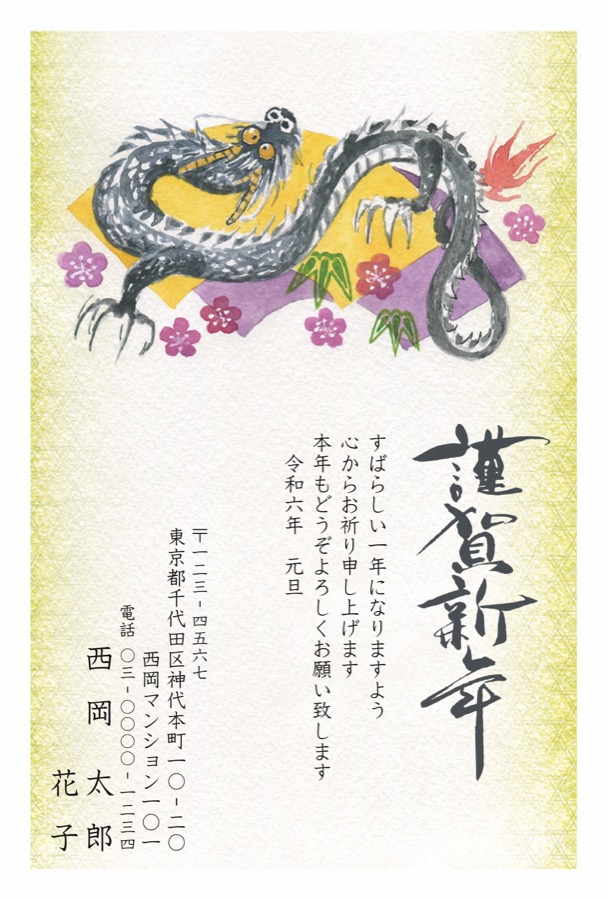 謹賀新年
すばらしい一年になりますよう
心からお祈り申し上げます
本年もどうぞよろしくお願い致します
令和六年　元旦
〒一二三-四五六七
東京都千代田区神代本町一〇-二〇
西岡マンション一〇一
電話　〇三-〇〇〇〇-一二三四
西岡　太郎
花子